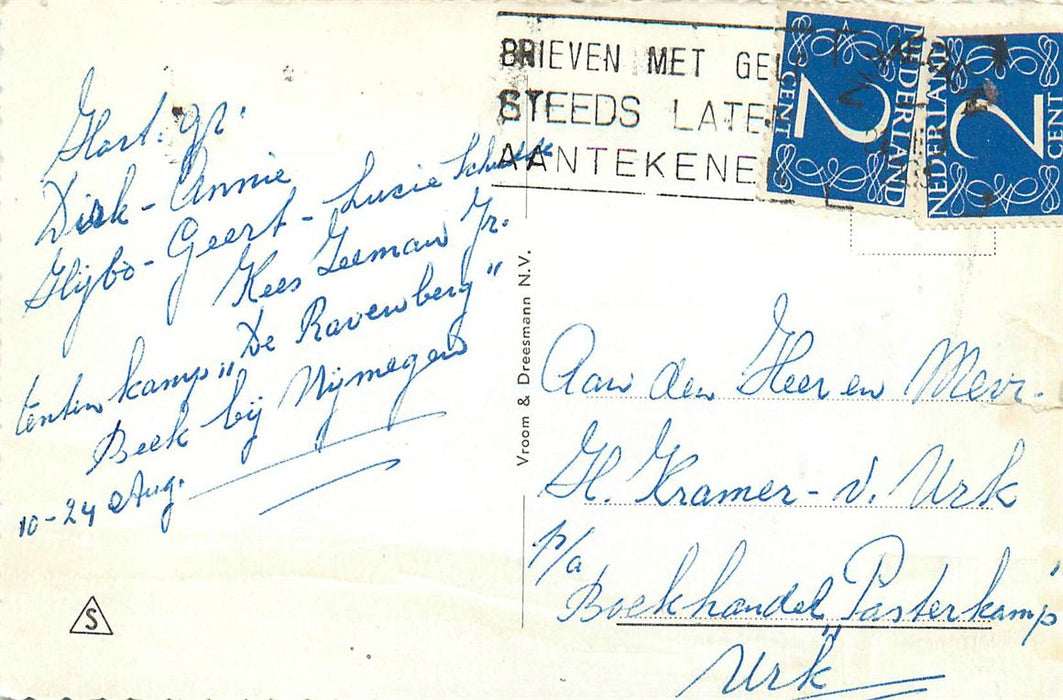 Hart. gr.
Dirk - Annie
Hijbo - Geert - Lucie
Kees Zeeman Jr.
tentenkamp „De Ravenberg"
Beek bij Nijmegen
10-24 Aug.
S
Vroom & Dreesmann N.V.
BRIEVEN MET GELD
STEEDS LATEN
AANTEKENEN
2 CENT NEDERLAND
2 CENT NEDERLAND
Aan den Heer en Mevr.
H. Kramer - v. Urk
p/a
Boekhandel „Pasterkamp"
Urk